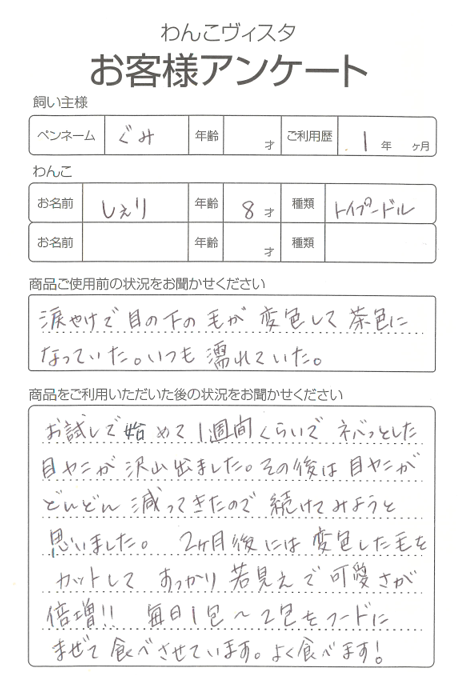 わんこヴィスタ
お客様アンケート
飼い主様
ペンネーム ぐみ 年齢 才 ご利用歴 1 年 ヶ月
わんこ
お名前 しぇり 年齢 8 才 種類 トイプードル
お名前 年齢 才 種類
商品ご使用前の状況をお聞かせください
涙やけで目の下の毛が変色して茶色に
なっていた。いつも濡れていた。
商品をご利用いただいた後の状況をお聞かせください
お試しで始めて1週間くらいでネバっとした
目ヤニが沢山出ました。その後は目ヤニが
どんどん減ってきたので続けてみようと
思いました。 2ヶ月後には変色した毛を
カットしてすっかり若見えで可愛さが
倍増!! 毎日1包〜2包をフードに
まぜて食べさせています。よく食べます!